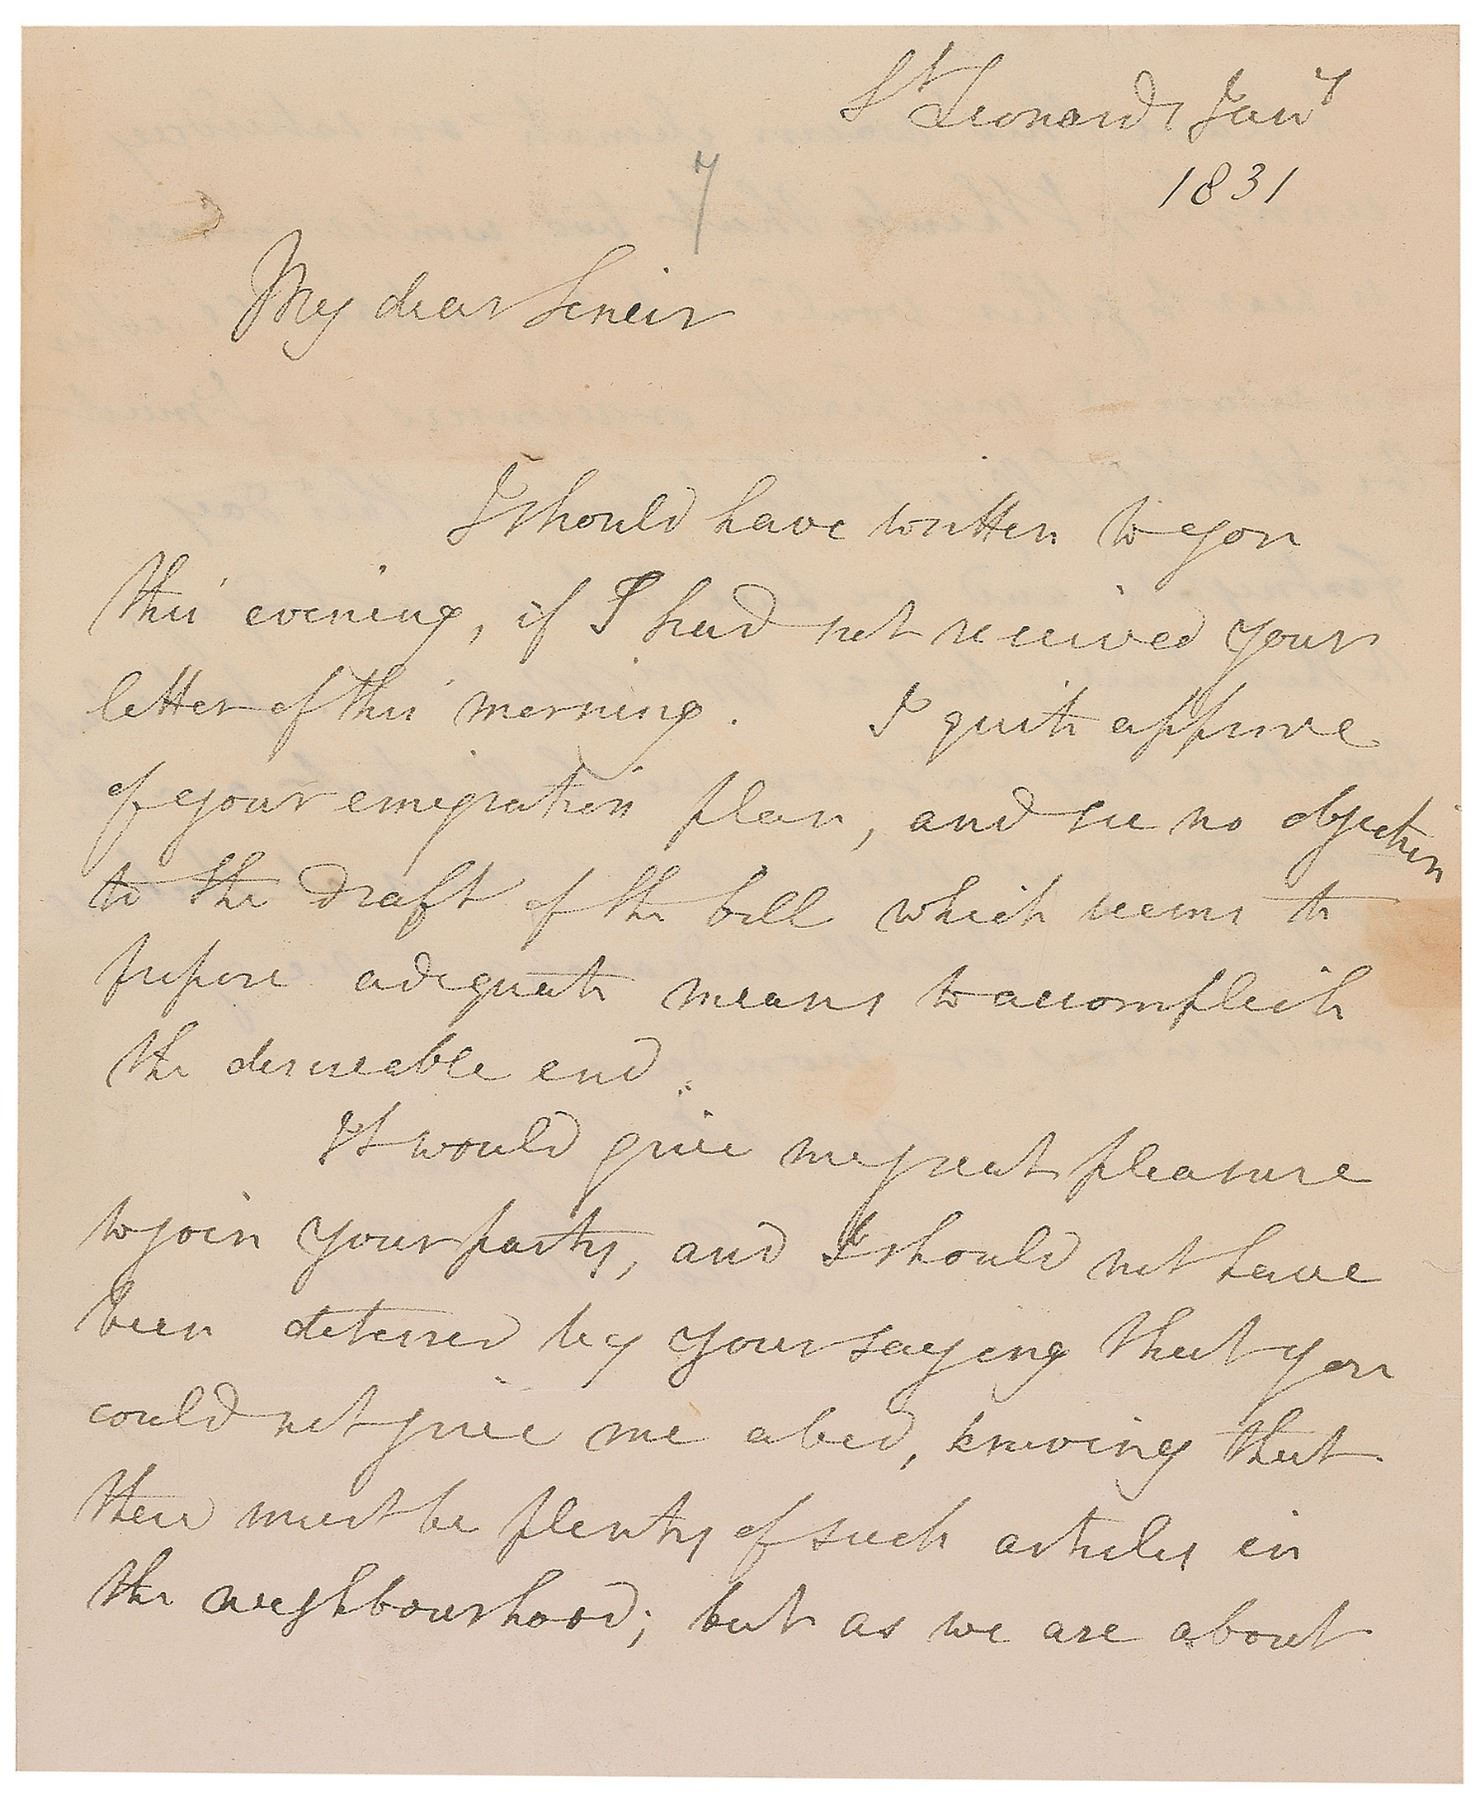 St Leonards Jany
1831
7
My dear Senior
I should have written to you
this evening, if I had not received your
letter of this morning. I quite approve
of your emigration plan, and see no objection
to the draft of the bill which seems to
propose adequate means to accomplish
the desireable end.
It would give me great pleasure
to join your party, and I should not have
been deterred by your saying that you
could not give me a bed, knowing that
there must be plenty of such articles in
the neighbourhood; but as we are about